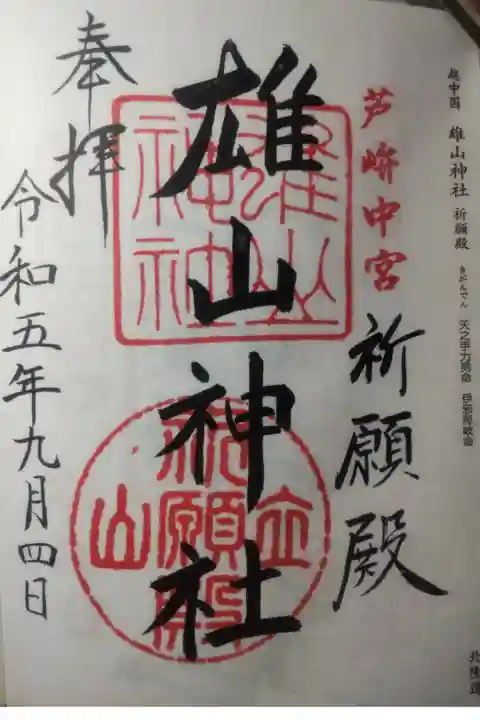 越中国 雄山神社 祈願殿 きがんでん 天之手力男命 伊邪那岐命
北陸道
芦峅中宮
祈願殿
雄山神社
雄山
神社
立
祈願殿
山
奉拝
令和五年九月四日